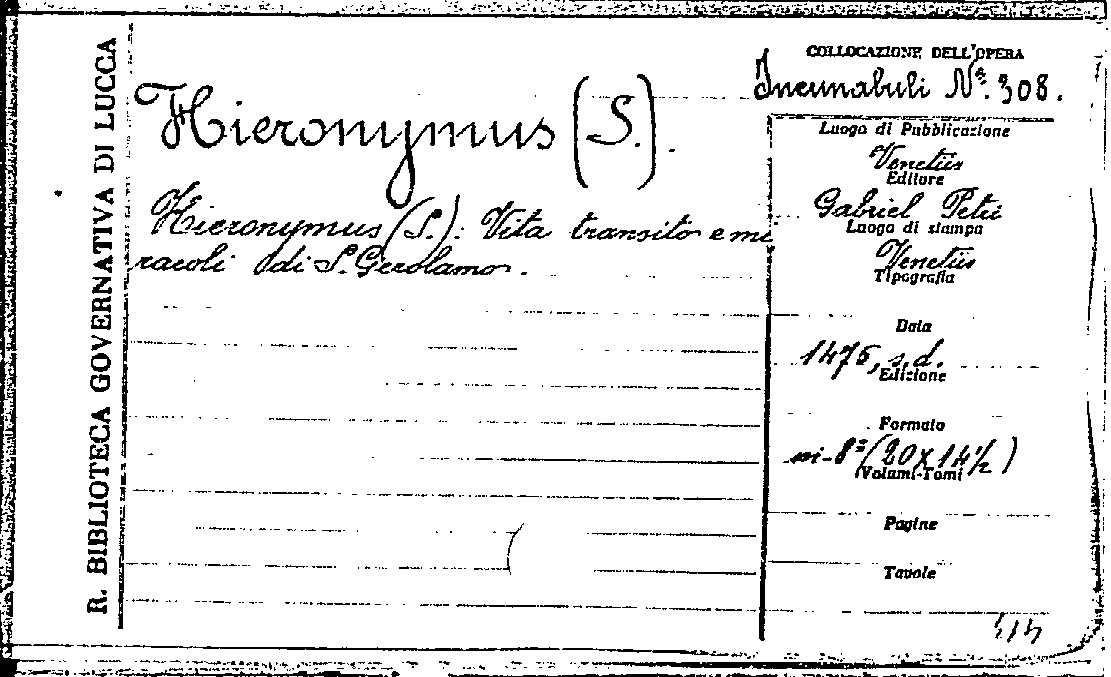 R. BIBLIOTECA GOVERNATIVA DI LUCCA
Hieronymus (S.).
Hieronymus (S.): Vita transito e mi
racoli di S. Gerolamo.
COLLOCAZIONE DELL'OPERA
Incunabuli Nº. 308.
Luogo di Pubblicazione
Venetiis
Editore
Gabriel Petri
Luogo di stampa
Venetiis
Tipografia
Data
1475, s.d.
Edizione
Formato
in-8º (20 x 14½)
(Volumi-Tomi
Pagine
Tavole